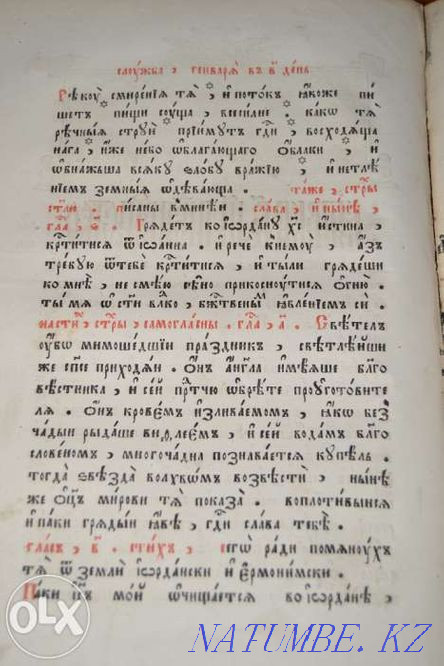 слꙋ́жба , генваря̀ въ в҃ де́нь
Рѣкꙋ̀ смире́нїѧ тѧ̀ , и҆ пото́къ ꙗ҆́коже пи
шетъ пи́щи сꙋ́ща , всеси́лне . ка́кѡ тѧ̀
рѣчны́ѧ стрꙋи̑ прїи́мꙋт гдⷭ҇и , восходѧ́ща
на́га , и҆́же не́бо ѡ҆блага́ющаго ѻ҆́блаки , и҆
ѡ҆бнажьша всѧ́кꙋ ѕло́бꙋ вра́жїю , и҆ нетлѣ́
нїемъ земны́ѧ ѡ҆дѣва́юща . та́же , стр҃ы
стїю . пи́саны въ мине́и . сла́ва , и҆ ны́нѣ ,
гла́ , ѳ҃ . Грѧде́тъ ко і҆ѻрда́нꙋ хс҃ и҆́стина ,
крⷭ҇ти́тисѧ ѿ і҆ѡа́нна . и҆ речѐ к немꙋ̀ , а҆́зъ
тре́бꙋю ѿ тебѐ крⷭ҇ти́тисѧ , и҆ ты́ ли грѧде́ши
ко мнѣ̀ , не смѣ́ю сѣ́но прикоснꙋ́тисѧ ѻ҆гню̀ .
ты̀ мѧ ѡ҆ст҃и влⷣко , бж҃твены́мъ ꙗ҆вле́нїем си̑ .
на сти́ , стр҃ы , самогла́сны . гла́ , а҃ . Свѣ́телъ
ᲂу҆́бѡ мимоше́дшїи пра́здникъ , свѣтлѣ́йши
же сп҃се приходѧ́и . Ѻ҆́нъ а҆́нгла и҆мѣ́ѧше бл҃го
вѣ́стника , и҆ се́й прⷣтчю ѡ҆брѣ́те проꙋгото́вите
лѧ . ѻ҆́нъ кро́вемъ и҆злива́емомъ , ꙗ҆́кѡ без
ча́дныи рыда́ше виѳлее́мъ , и҆ се́й вода́мъ бл҃го
слове́номъ , многоча́дна познава́етсѧ кꙋпѣ́ль .
тогда̀ ѕвѣзда̀ волхво́мъ возвѣстѝ , ны́нѣ
же ѻ҆ц҃ъ ми́рови тѧ̀ показа̀ . воплоти́выисѧ
и҆ па́ки грѧды́и ꙗ҆́вѣ , гдⷭ҇и сла́ва тебѣ̀ .
гла́съ , в҃ . сти́хъ , сегѡ̀ ра́ди помѧнꙋ́хъ
тѧ̀ ѿ землѝ і҆ѻрда́нски и҆ є҆рмони́мски .
Па́ки і҆и҃съ мо́й ѡ҆чища́етсѧ во і҆ѻрда́нѣ ,
OLX
NATUMBE. KZ